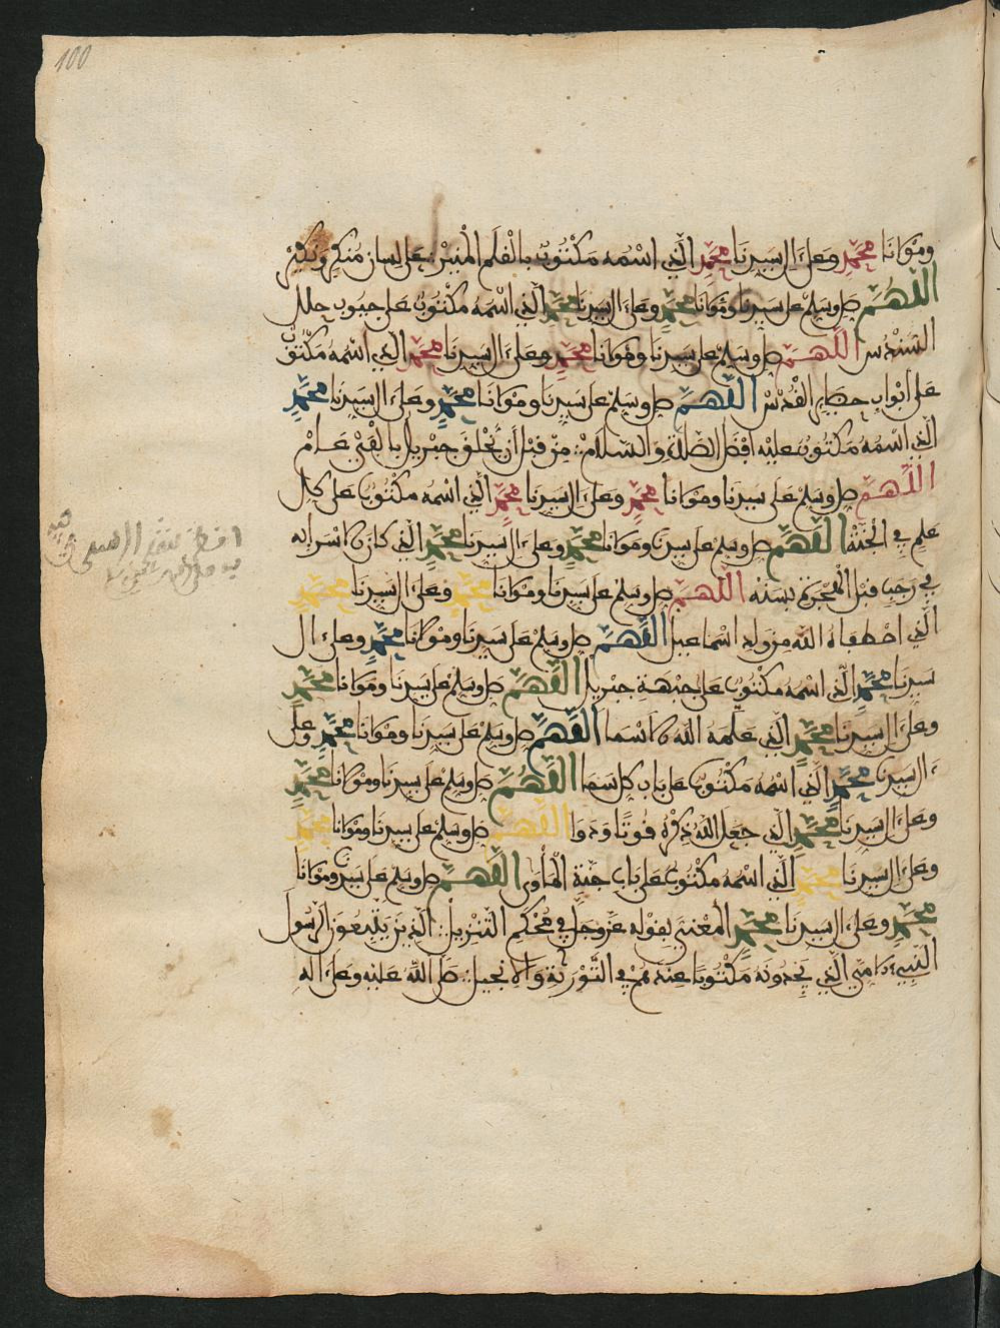 100
ومولانا محمد وعلى ءال سيدنا محمد الذي اسمه مكتوب بالقلم المنير على لسان منكر ونكير
اللهم صل وسلم على سيدنا ومولانا محمد وعلى ءال سيدنا محمد الذي اسمه مكتوب على جيوب حلل
السندس اللهم صل وسلم على سيدنا ومولانا محمد وعلى ءال سيدنا محمد الذي اسمه مكتوب
على ابواب حظاير القدس اللهم صل وسلم على سيدنا ومولانا محمد وعلى ءال سيدنا محمد
الذي اسمه مكتوب عليه افضل الصلاة والسلام من قبل أن يخلق جبريل بالفي عام
اللهم صل وسلم على سيدنا ومولانا محمد وعلى ءال سيدنا محمد الذي اسمه مكتوب على كل
علم في الجنة اللهم صل وسلم على سيدنا ومولانا محمد وعلى ءال سيدنا محمد الذي كان الاسراء به
في رجب قبل الهجرة بسنة اللهم صل وسلم على سيدنا ومولانا محمد وعلى ءال سيدنا محمد
الذي اصطفاه الله من ولد اسماعيل اللهم صل وسلم على سيدنا ومولانا محمد وعلى ءال
سيدنا محمد الذي اسمه مكتوب على جبهة جبريل اللهم صل وسلم على سيدنا ومولانا محمد
وعلى ءال سيدنا محمد الذي علمه الله الاسما اللهم صل وسلم على سيدنا ومولانا محمد وعلى
ءال سيدنا محمد الذي اسمه مكتوب على باب كل سما اللهم صل وسلم على سيدنا ومولانا محمد
وعلى ءال سيدنا محمد الذي جعل الله ذكره قوتا ودوا اللهم صل وسلم على سيدنا ومولانا محمد
وعلى ءال سيدنا محمد الذي اسمه مكتوب على باب جنة المأوى اللهم صل وسلم على سيدنا ومولانا
محمد وعلى ءال سيدنا محمد المعني بقوله عز وجل في محكم التنزيل الذين يتبعون الرسول
النبيء الامي الذي يجدونه مكتوبا عندهم في التورية والانجيل صلى الله عليه وعلى اله